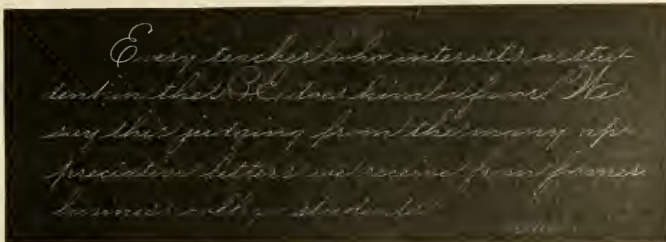 Every teacher who interests a stu-
dent in the B.E. does him a favor. We
say this judging from the many ap-
preciative letters we receive from former
business students